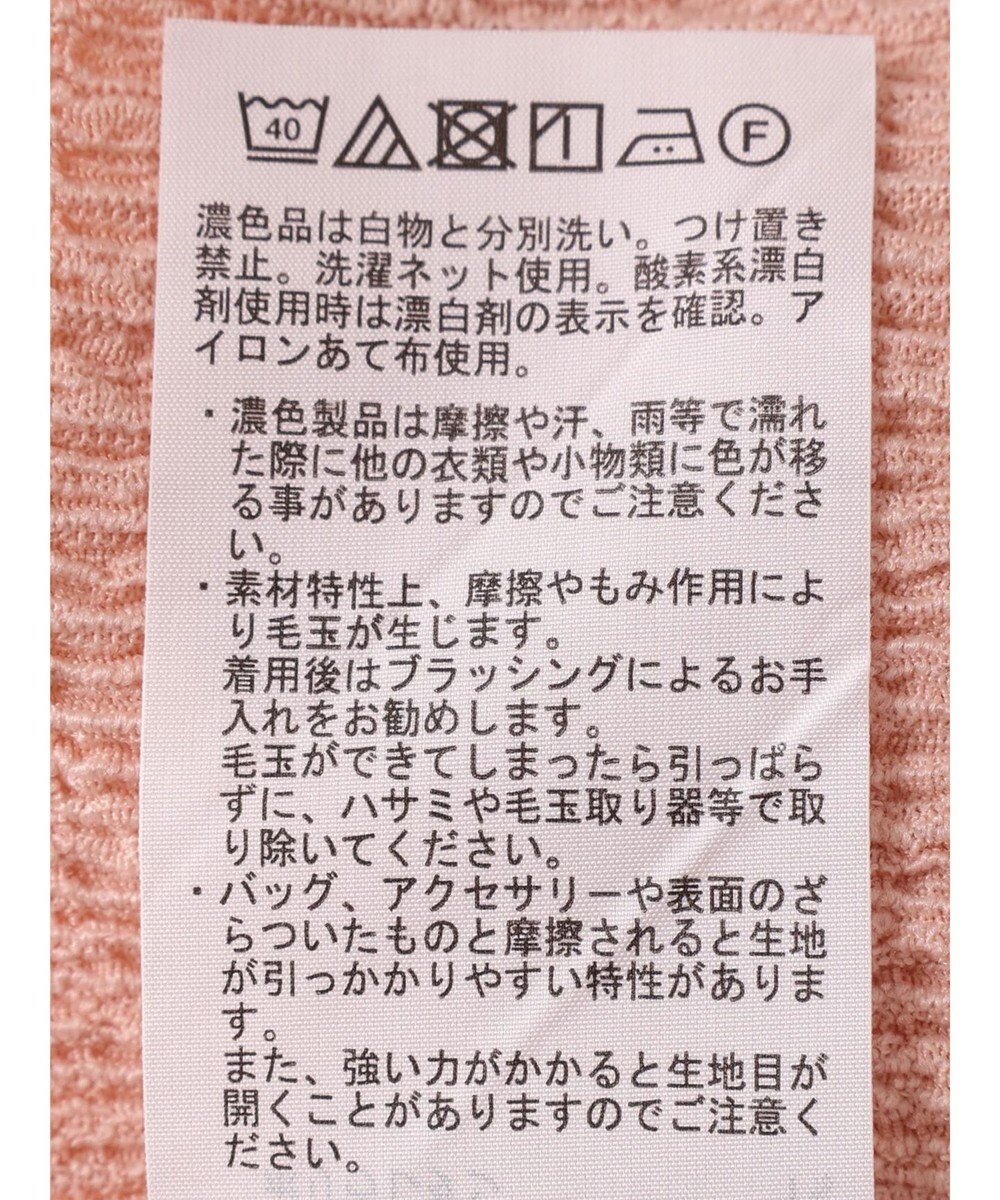 40 F
濃色品は白物と分別洗い。つけ置き
禁止。洗濯ネット使用。酸素系漂白
剤使用時は漂白剤の表示を確認。ア
イロンあて布使用。
・濃色製品は摩擦や汗、雨等で濡れ
た際に他の衣類や小物類に色が移
る事がありますのでご注意くださ
い。
・素材特性上、摩擦やもみ作用によ
り毛玉が生じます。
着用後はブラッシングによるお手
入れをお勧めします。
毛玉ができてしまったら引っぱら
ずに、ハサミや毛玉取り器等で取
り除いてください。
・バッグ、アクセサリーや表面のざ
らついたものと摩擦されると生地
が引っかかりやすい特性がありま
す。
また、強い力がかかると生地目が
開くことがありますのでご注意く
ださい。